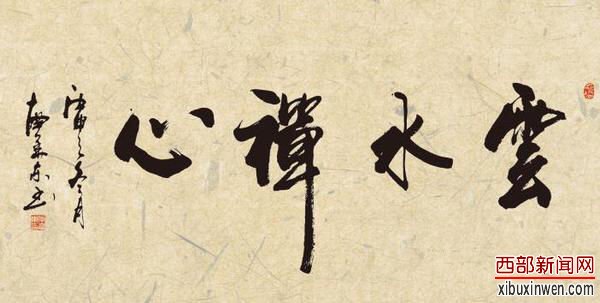 雲水禪心
冬月
东书
西部新闻网
xibuxinwen.com